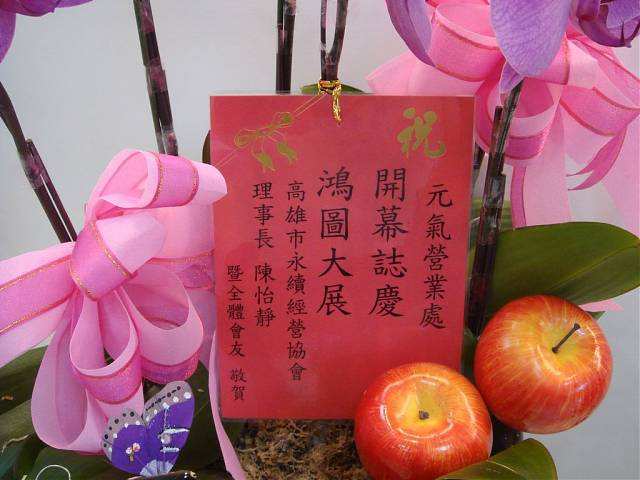 祝
元氣營業處
開幕誌慶
鴻圖大展
高雄市永續經營協會
理事長 陳怡靜
暨全體會友 敬賀